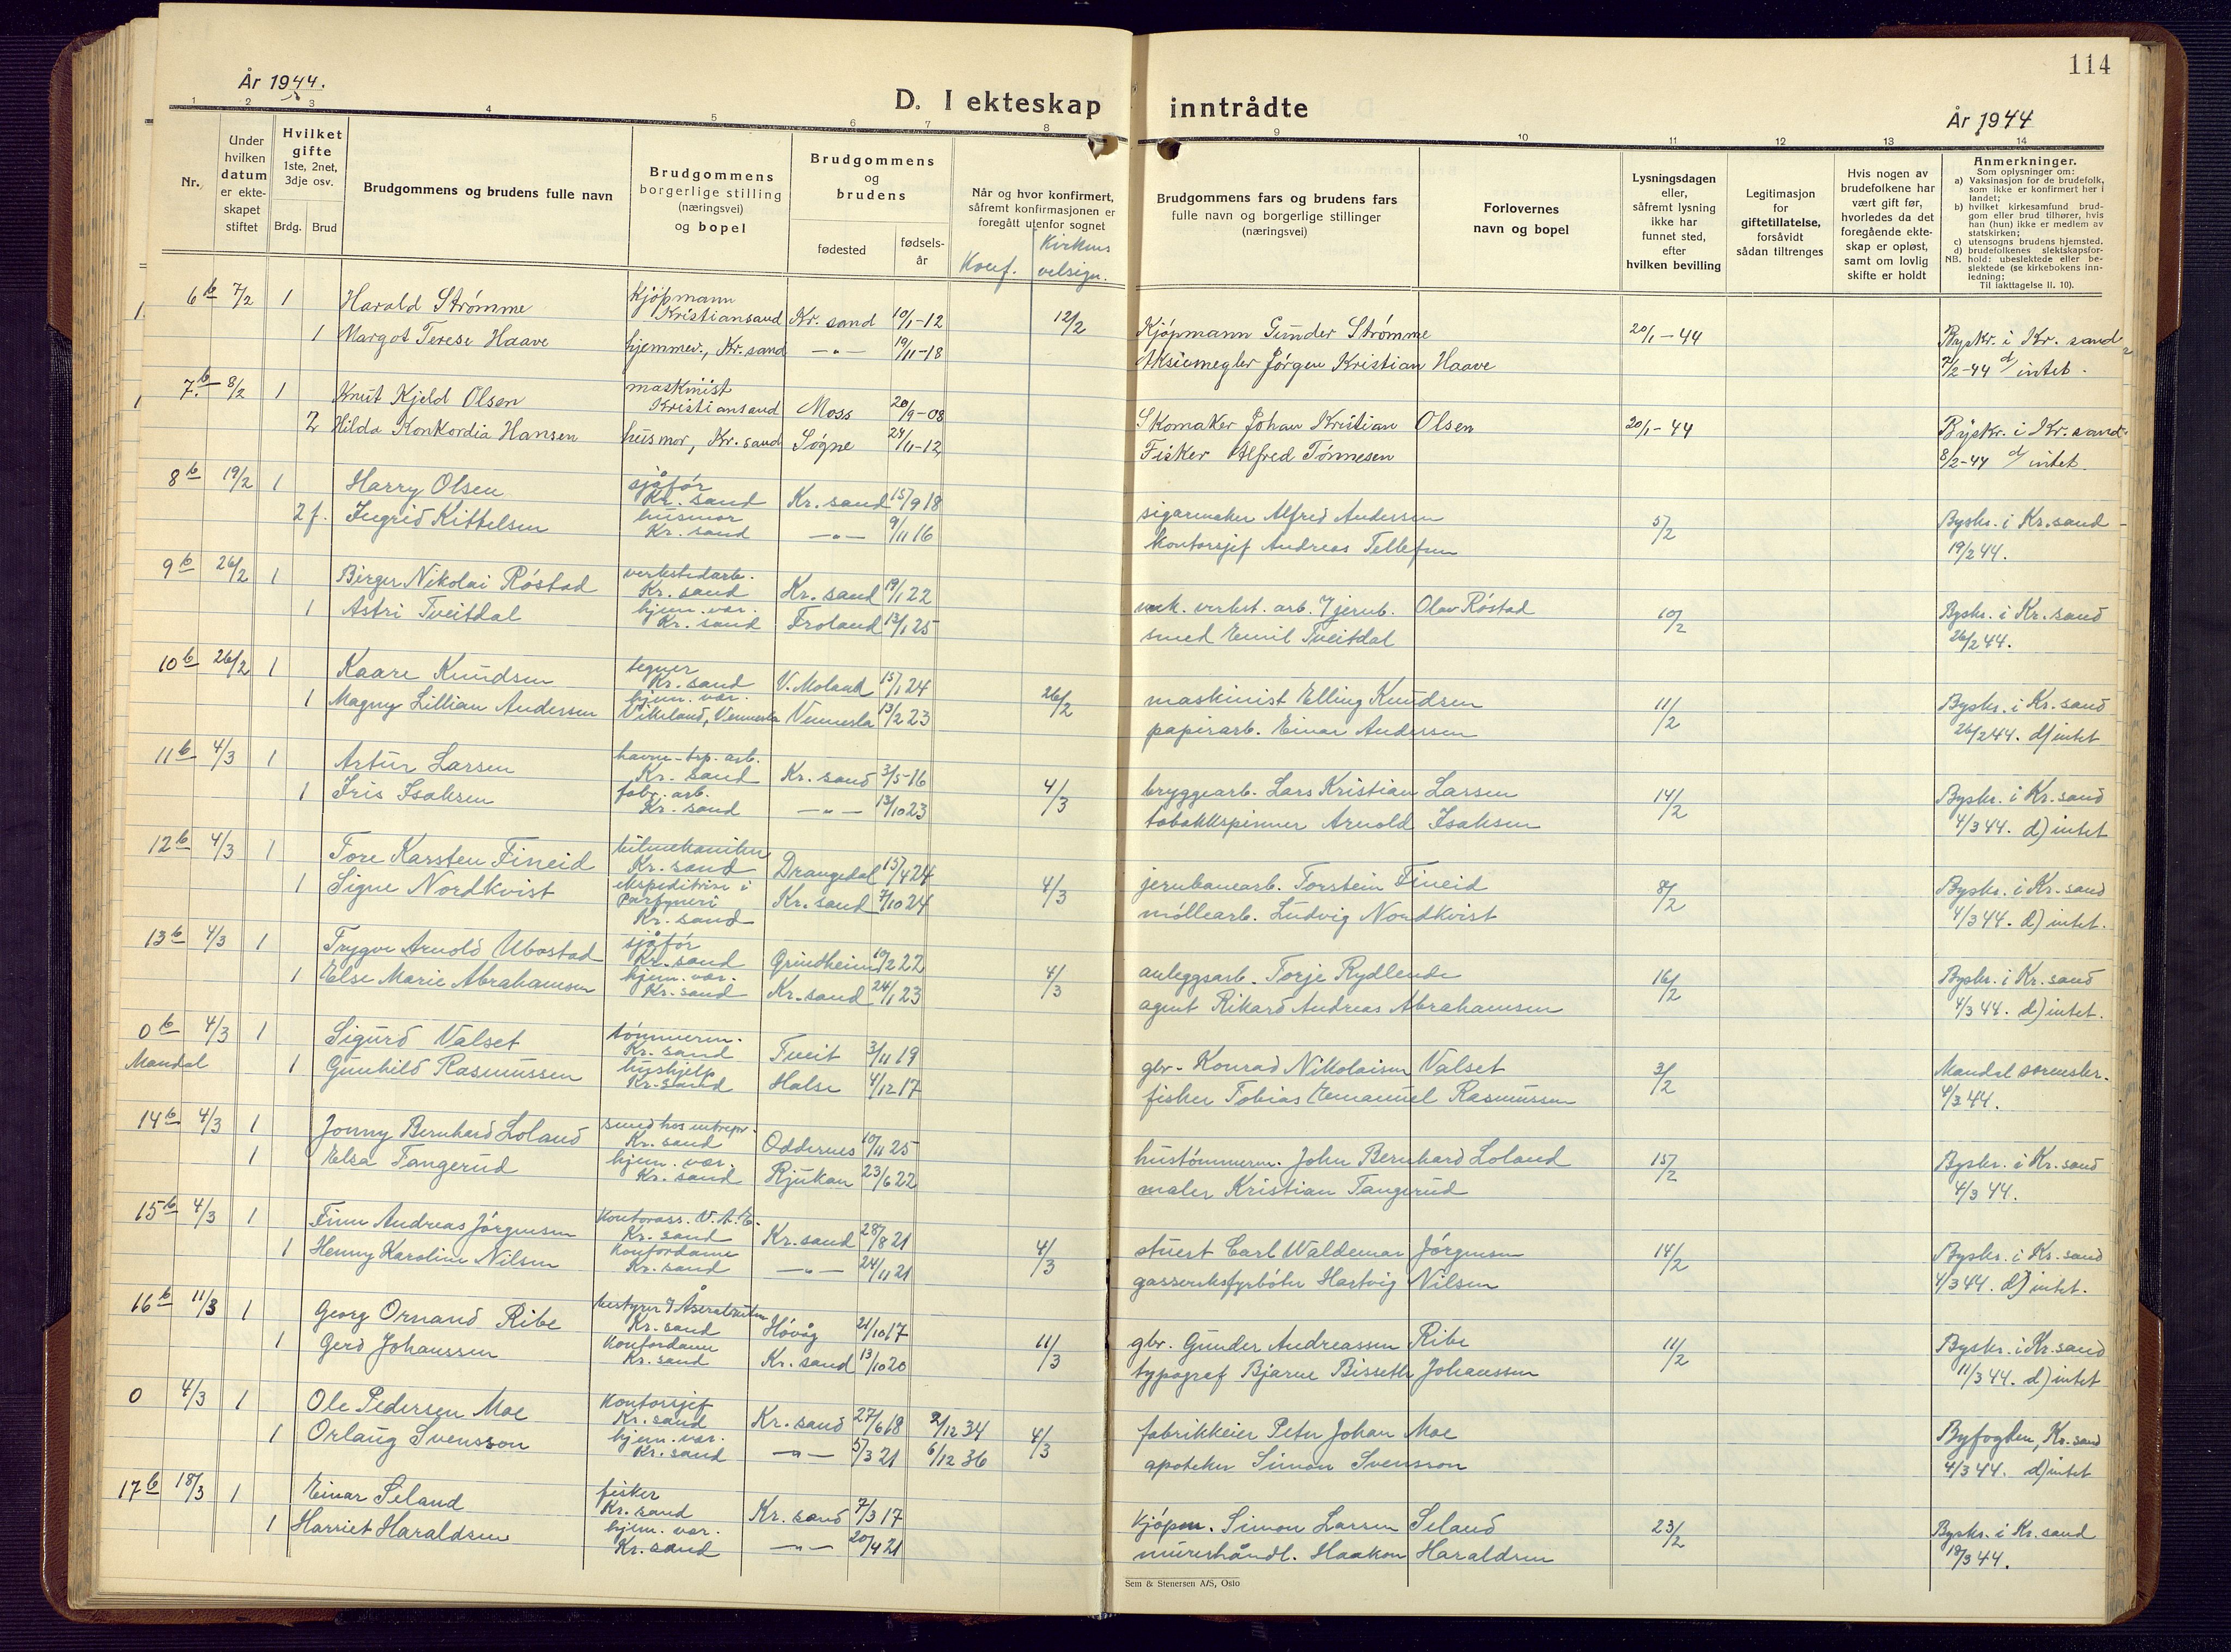 114
År 1944.
D. I ekteskap inntrådte
År 1944
1 2 3 4 5 6 7 8 9 10 11 12 13 14
Nr.
Under
hvilken
datum
er ekte-
skapet
stiftet
Hvilket
gifte
1ste, 2net,
3dje osv.
Brdg. Brud
Brudgommens og brudens fulle navn
Brudgommens
borgerlige stilling
(næringsvei)
og bopel
Brudgommens
og
brudens
fødested
fødsels-
år
Når og hvor konfirmert,
såfremt konfirmasjonen er
foregått utenfor sognet
Konf.
Kirkens
velsign.
Brudgommens fars og brudens fars
fulle navn og borgerlige stillinger
(næringsvei)
Forlovernes
navn og bopel
Lysningsdagen
eller,
såfremt lysning
ikke har
funnet sted,
efter
hvilken bevilling
Legitimasjon
for
giftetillatelse,
forsåvidt
sådan tiltrenges
Hvis nogen av
brudefolkene har
vært gift før,
hvorledes da det
foregående ekte-
skap er opløst,
samt om lovlig
skifte er holdt
Anmerkninger.
Som oplysninger om:
a) Vaksinasjon for de brudefolk,
som ikke er konfirmert her i
landet;
b) hvilket kirkesamfund brud-
gom eller brud tilhører, hvis
han (hun) ikke er medlem av
statskirken;
c) utensogns brudens hjemsted,
d) brudefolkenes slektskapsfor-
NB. hold: ubeslektede eller be-
slektede (se kirkebokens inn-
ledning;
Til iakttagelse II. 10).
6 b 7/2 1 Harald Strømme Kjøpmann Kristiansand Kr. sand 10/1-12 12/2 Kjøpmann Gunder Strømme 20/1-44 Byskr. i Kr. sand
1 Margot Terese Haave hjemmev., Kr. sand -"- 19/11-18 Aksiemegler Jørgen Kristian Haave 7/2-44 d/ intet.
7 b 8/2 1 Knut Kjeld Olsen maskinist Kristiansand Moss 20/9-08 Skomaker Johan Kristian Olsen 20/1-44 Byskr. i Kr. sand
2 Hilda Konkordia Hansen husmor, Kr. sand Søgne 24/11-12 Fisker Alfred Tønnesen 8/2-44 d/ intet.
8 b 19/2 1 Harry Olsen sjåfør Kr. sand Kr. sand 15/9 18 sigarmaker Alfred Andersen 5/2 Byskr. i Kr. sand
2 f. Ingrid Kittelsen husmor Kr. sand -"- 9/11 16 kontorsjef Andreas Tellefsen 19/2 44.
9 b 26/2 1 Birger Nikolai Røstad verkstedarb. Kr. sand Kr. sand 19/1 22 mek. verkst. arb. v/jernb. Olav Røstad 10/2 Byskr. i Kr. sand
1 Astri Tveitdal hjem. vær. Kr. sand Froland 13/1 25 smed Emil Tveitdal 26/2 44.
10 b 26/2 1 Kaare Knudsen tegner Kr. sand V. Moland 15/1 24 26/2 maskinist Elling Knudsen 11/2 Byskr. i Kr. sand
1 Magny Lillian Andersen hjem. vær. Vikeland, Vennesla Vennesla 13/2 23 papirarb. Einar Andersen 26/2 44. d) intet
11 b 4/3 1 Artur Larsen havne-trp. arb. Kr. sand Kr. sand 3/5-16 4/3 bryggearb. Lars Kristian Larsen 14/2 Byskr. i Kr. sand
1 Iris Isaksen fabr. arb. Kr. sand -"- 13/10 23 tobakkspinner Arnold Isaksen 4/3 44. d) intet
12 b 4/3 1 Tore Karsten Fineid bilmekaniker Kr. sand Drangedal 15/4 24 4/3 jernbanearb. Torstein Fineid 8/2 Byskr. i Kr. sand
1 Signe Nordkvist ekspeditrise i parfymeri Kr. sand Kr. sand 7/10 24 møllearb. Ludvig Nordkvist 4/3 44. d) intet.
13 b 4/3 1 Trygve Arnold Ubostad sjåfør Kr. sand Grindheim 19/2 22 4/3 anleggsarb. Torje Rydlende 16/2 Byskr. i Kr. sand
1 Else Marie Abrahamsen hjem. vær. Kr. sand Kr. sand 24/1 23 agent Rikard Andreas Abrahamsen 4/3 44. d) intet.
0 b 4/3 1 Sigurd Valset tømmerm. Kr. sand Tveit 3/11 19 gbr. Konrad Nikolaisen Valset 3/2 Mandal sorenskr.
Mandal 1 Gunhild Rasmussen hushjelp Kr. sand Halse 4/12 17 fisker Tobias Emanuel Rasmussen 4/3 44.
14 b 4/3 1 Jonny Bernhard Loland smed hos entrepr. Kr. sand Oddernes 10/11 25 hustømmerm. John Bernhard Loland 15/2 Byskr. i Kr. sand
1 Elsa Tangerud hjem. vær. Kr. sand Rjukan 23/6 22 maler Kristian Tangerud 4/3 44.
15 b 4/3 1 Finn Andreas Jørgensen Kontorass. Kr. sand Kr. sand 28/8 21 4/3 stuert Carl Waldemar Jørgensen 14/2 Byskr. i Kr. sand
1 Henny Karoline Nilsen Kontordame Kr. sand -"- 24/11 21 gassverksfyrbøter Hartvig Nilsen 4/3 44. d) intet.
16 b 11/3 1 Georg Ornand Ribe bestyrer Kr. sand Høvåg 21/10 17 11/3 gbr. Gunder Andreassen Ribe 11/2 Byskr. i Kr. sand
1 Gerd Johanssen Kontordame Kr. sand Kr. sand 13/10 20 typograf Bjarne Bisseth Johanssen 11/3 44. d) intet
0 4/3 1 Ole Pedersen Moe Kontorsjef Kr. sand Kr. sand 27/6 18 2/12 34 4/3 fabrikkeier Peter Johan Moe Byfogden, Kr. sand
1 Orlaug Svensson hjem. vær. Kr. sand -"- 5/3 21 6/12 36 apoteker Simon Svensson 4/3 44. d) intet
17 b 18/3 1 Einar Seland fisker Kr. sand Kr. sand 7/3 17 kjøpm. Simon Larsen Seland 23/2 Byskr. i Kr. sand
1 Harriet Haraldsen hjem. vær. Kr. sand -"- 20/4 21 murerhåndl. Haakon Haraldsen 18/3 44.
Sem & Stenersen A/S, Oslo